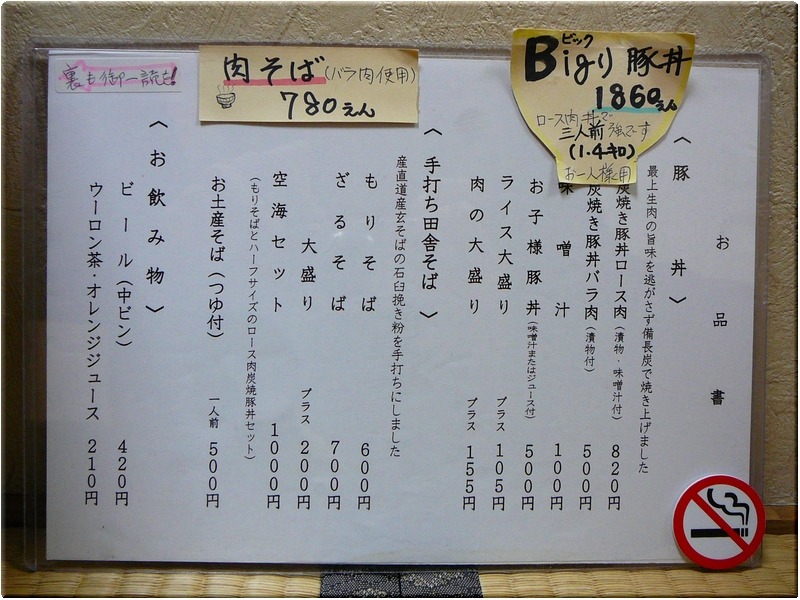 お品書
〈豚丼〉
最上生肉の旨味を逃がさず備長炭で焼き上げました
炭焼き豚丼ロース肉(漬物・味噌汁付) 820円
炭焼き豚丼バラ肉(漬物付) 500円
味噌汁 100円
お子様豚丼(味噌汁またはジュース付) 500円
ライス大盛り プラス 105円
肉の大盛り プラス 155円
〈手打ち田舎そば〉
産直道産玄そばの石臼挽き粉を手打ちにしました
もりそば 600円
ざるそば 700円
大盛り プラス 200円
空海セット 1000円
(もりそばとハーフサイズのロース肉炭焼豚丼セット)
お土産そば(つゆ付) 一人前 500円
〈お飲み物〉
ビール(中ビン) 420円
ウーロン茶・オレンジジュース 210円
ビック
Bigり豚丼
1860えん
ロース肉丼で
三人前強です
(1.4キロ)
お一人様用
肉そば(バラ肉使用)
780えん
裏も御一読を!